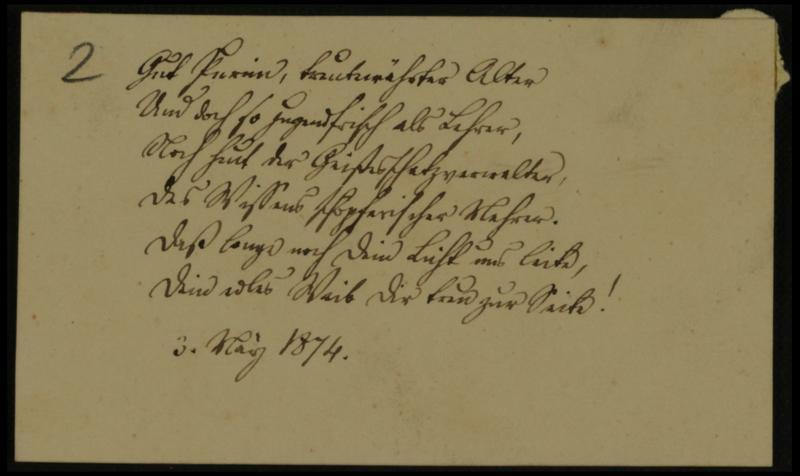 2
Gut Purim, treubewährter Alter
Und doch so jugendfrisch als Lehrer,
Noch heut der Geistesschatzverwalter,
Des Wissens schöpferischer Mehrer.
Daß lange noch Dein Licht uns leite,
Dein edles Weib Dir treu zur Seite!
3. März 1874.